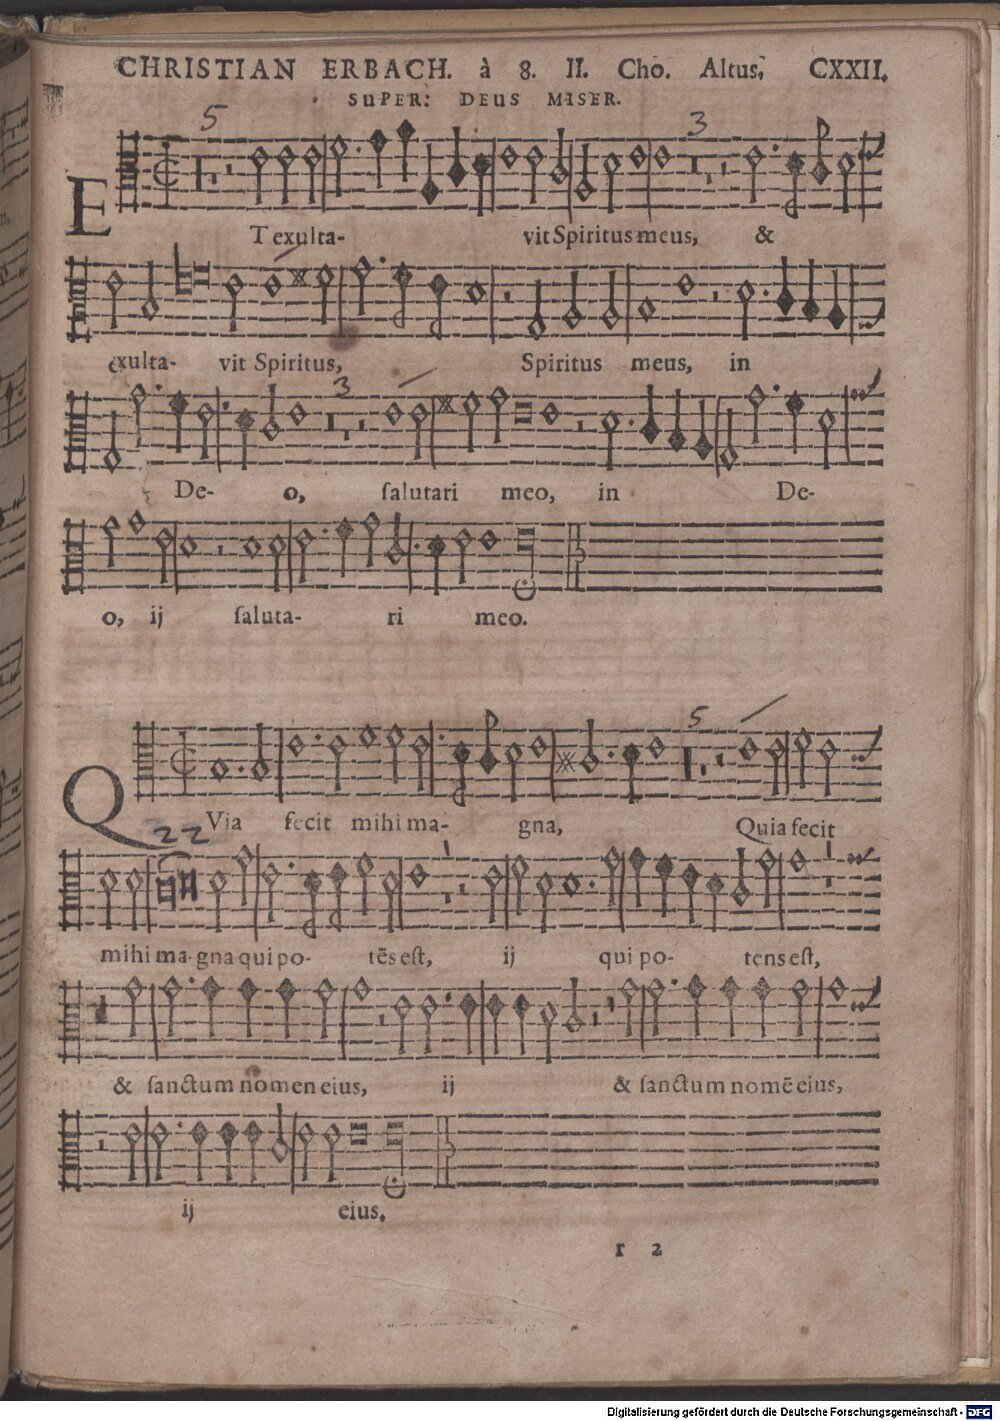 CHRISTIAN ERBACH. à 8. II. Cho. Altus. CXXII.
SUPER: DEUS MISER.
5 3
ET exulta- vit Spiritus meus, &
exulta- vit Spiritus, Spiritus meus, in
3
De- o, ſalutari meo, in De-
o, ij ſaluta- ri meo.
5
QVia fecit mihi ma- gna, Quia fecit
22
mihi ma-gna qui po- tēs eſt, ij qui po- tens eſt,
& ſanctum nomen eius, ij & ſanctum nomē eius,
ij eius.
r 2
Digitalisierung gefördert durch die Deutsche Forschungsgemeinschaft - DFG